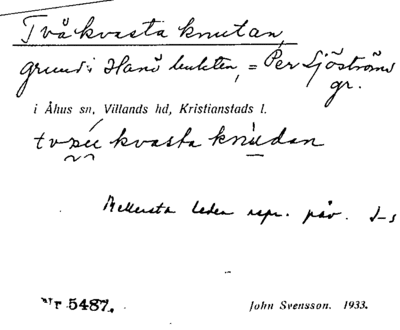 Tvåkvasta knutan,
grund i Hanöbukten, = Per Sjöströms
gr.
i Åhus sn, Villands hd, Kristianstads l.
kvasta knùdan
Mellersta leden repr. påv. J-s
Nr 5487.
John Svensson. 1933.